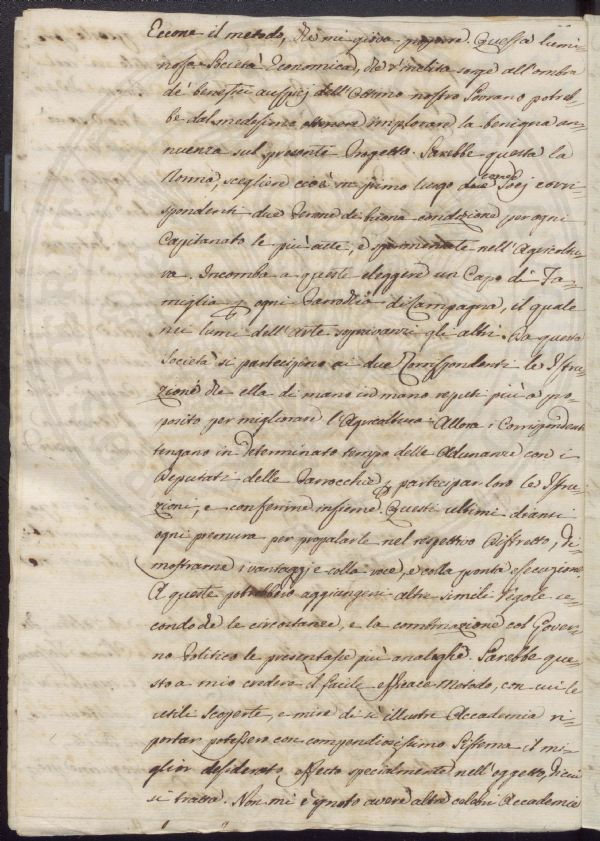 Eccone il metodo, che mi giova proporre. Questa lumi-
nosa Società Economica, che s'inclita sorge all'ombra
de' benefici auspicj dell'Ottimo nostro Sovrano potreb-
be dal medesimo ottenere implorare la benigna an-
nuenza sul presente Progetto. Sarebbe questa la
Norma, scegliere cioè in primo luogo due Socj corri-
spondenti due Persone di buona condizione per ogni
Capitanato le più atte, e sperimentate nell'Agricoltu-
ra. Incomba a queste eleggere un Capo di Fa-
miglia per ogni Parrocchia di Campagna, il quale
nei lumi dell'Arte sopravanzi gli altri. Da questa
Società si partecipino ai due Corrispondenti le Istru-
zioni che ella di mano in mano reputi più a pro-
posito per migliorare l'Agricoltura. Allora i Corrispondenti
tengano in determinato tempo delle Adunanze con i
Deputati delle Parrocchie per partecipar loro le Istru-
zioni, e conferirne insieme. Questi ultimi diansi
ogni premura per propalarle nel respettivo Distretto, di-
mostrarne i vantaggi e colla voce, e colla pronta esecuzione.
A queste potrebbero aggiungersi altre simili Regole se-
condo che le circostanze, e la combinazione col Gover-
no Politico le presentasse più analoghe. Sarebbe que-
sto a mio credere il facile efficace Metodo, con cui le
utili scoperte, e mire di sì illustre Accademia ri-
portar potessero con compendiosissimo Sistema il mi-
glior desiderato effetto specialmente nell'oggetto, di cui
si tratta. Non mi è ignoto avere altre celebri Accademie